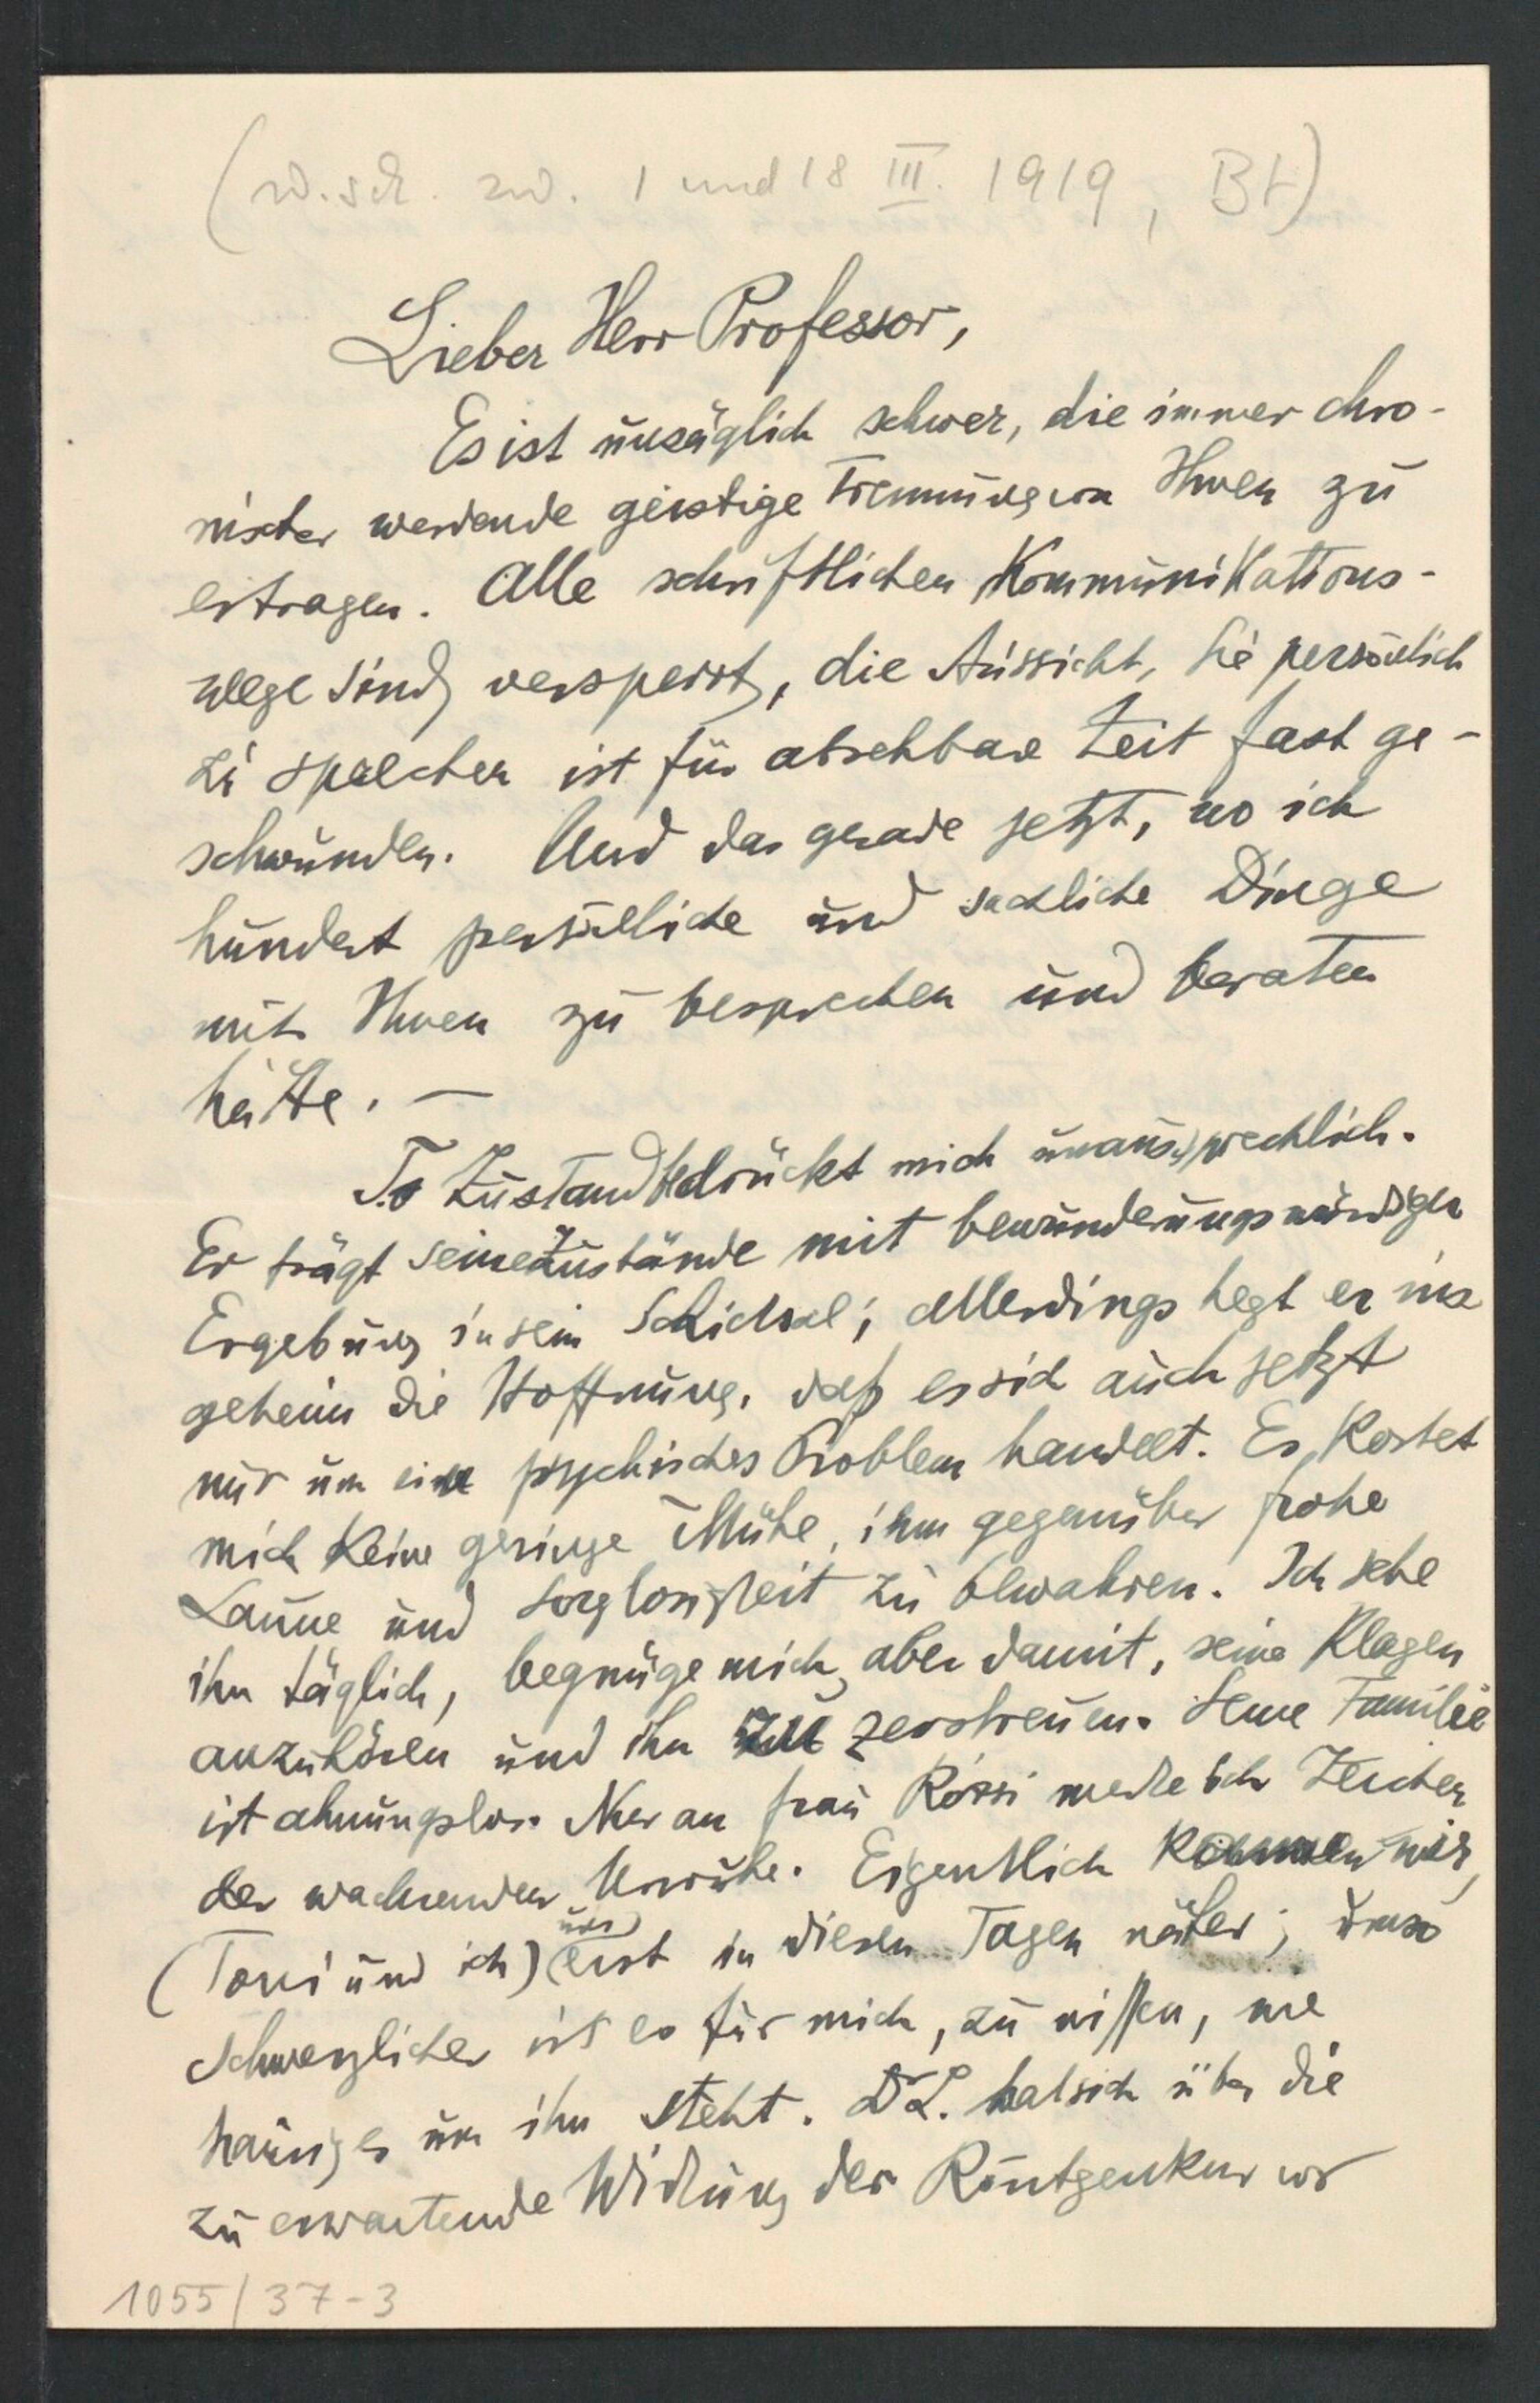 (w.sch. zw. 1 und 18 III. 1919, Bt)
Lieber Herr Professor,
Es ist unsäglich schwer, die immer chro-
nischer werdende geistige Trennung von Ihnen zu
ertragen. Alle schriftlichen Kommunikations-
wege sind versperrt, die Aussicht, Sie persönlich
zu sprechen ist für absehbare Zeit fast ge-
schwunden. Und das gerade jetzt, wo ich
hundert persönliche und sachliche Dinge
mit Ihnen zu besprechen und beraten
hätte. —
T.s Zustand bedrückt mich unaussprechlich.
Er trägt seine Zustände mit bewunderungswürdiger
Ergebung in sein Schicksal; allerdings hegt er ins-
geheim die Hoffnung, daß es sich auch jetzt
nur um ein psychisches Problem handelt. Es kostet
mich keine geringe Mühe, ihm gegenüber frohe
Laune und Sorglosigkeit zu bewahren. Ich sehe
ihn täglich, begnüge mich aber damit, seine Klagen
anzuhören und ihn zu zerstreuen. Seine Familie
ist ahnungslos. Nur an Frau Rózsi merke ich Zeichen
der wachsenden Unruhe. Eigentlich kommen wir,
(Toni und ich) uns erst in diesen Tagen näher; umso
schmerzlicher ist es für mich, zu wissen, wie
traurig es um ihn steht. Dr L. hat sich über die
zu erwartende Wirkung der Röntgenkur vor
1055/37-3